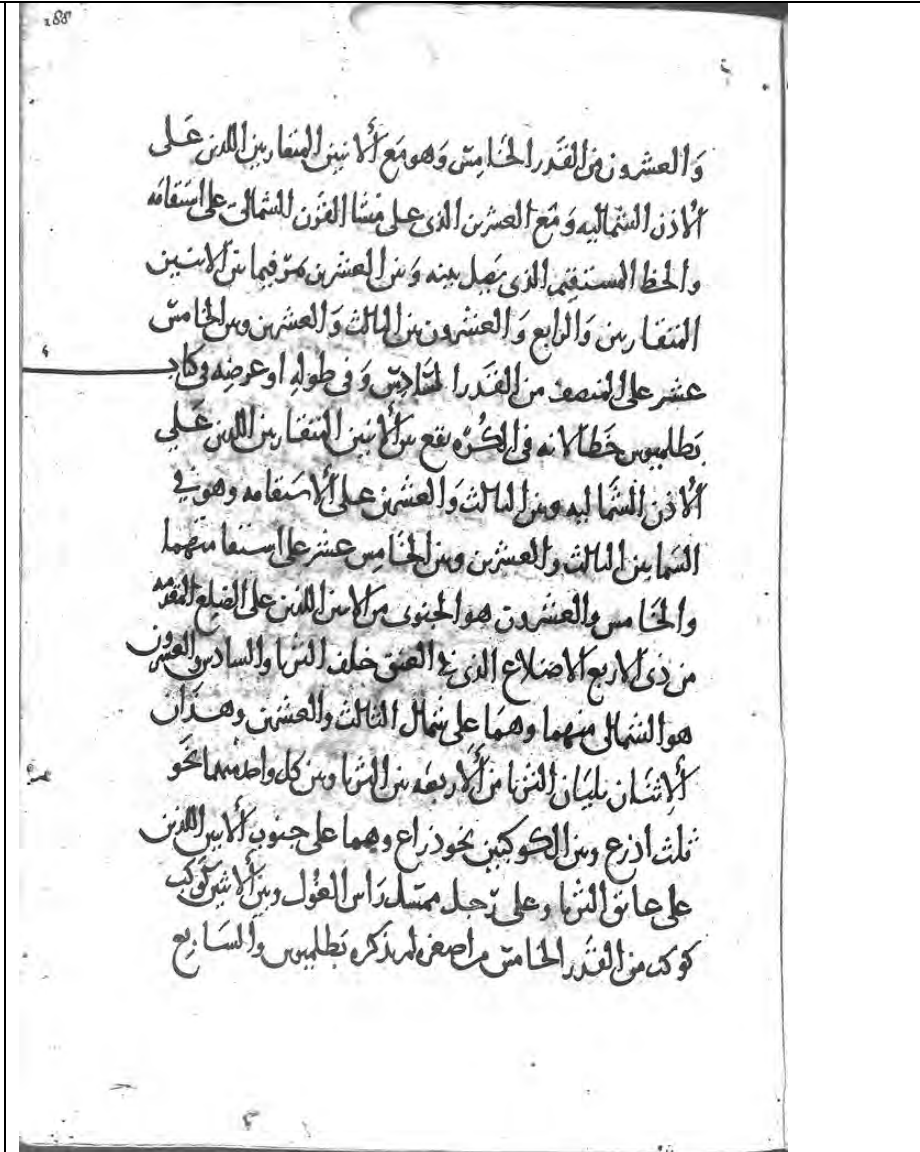 188
وَالعشرون من القَدر الخَامِس وَهو مَع الاثنين المتقاربين اللذين عَلى
الاذن الشماليه وَمَع العشرين الذى على منشا القرن الشمالى على استقامه
والخط المستقيم الذى يصل بينه وَبين العشرين يمرّ فيما بين الاثنين
المتقاربين وَالرابع وَالعشرون بين الثالث وَالعشرين وبين الخامس
عشر على المنصف من القَدر السَادِس وَفى طوله او عرضِه فى كتاب
بطلميوس خَطا لانه فى الكُره يقع بين الاثنين المتقاربين اللذين عَلى
الاذن الشماليه وبين الثالث وَالعشرين على الاستقامه وهو فى
السَما بين الثالث والعشرين وبين الخَامِس عشر على استقامتهما
والخَامس والعشرون هو الجنوبى من الاثنين اللذين على الضلع المقدمه
من ذى الاربع الاضلاع الذى فى العنق خلف الثريا والسادس والعشرون
هو الشمالى منهما وهمَا على شمال الثالث والعشرين وهـذان
الاثنان يليَان الثريا من الاربعه بين الثريا وبين كل واحد منهما نحو
ثلث اذرع وبين الكوكبين نحو ذراع وهما على جنوب الاثنين اللذين
على عاتق الثريا وعلى رَجل ممسك رَاس الغُول وبين الاثنين كَوكب
كوكب من القَدر الخامس من اصغره لم يذكره بَطلميوس والسَابع